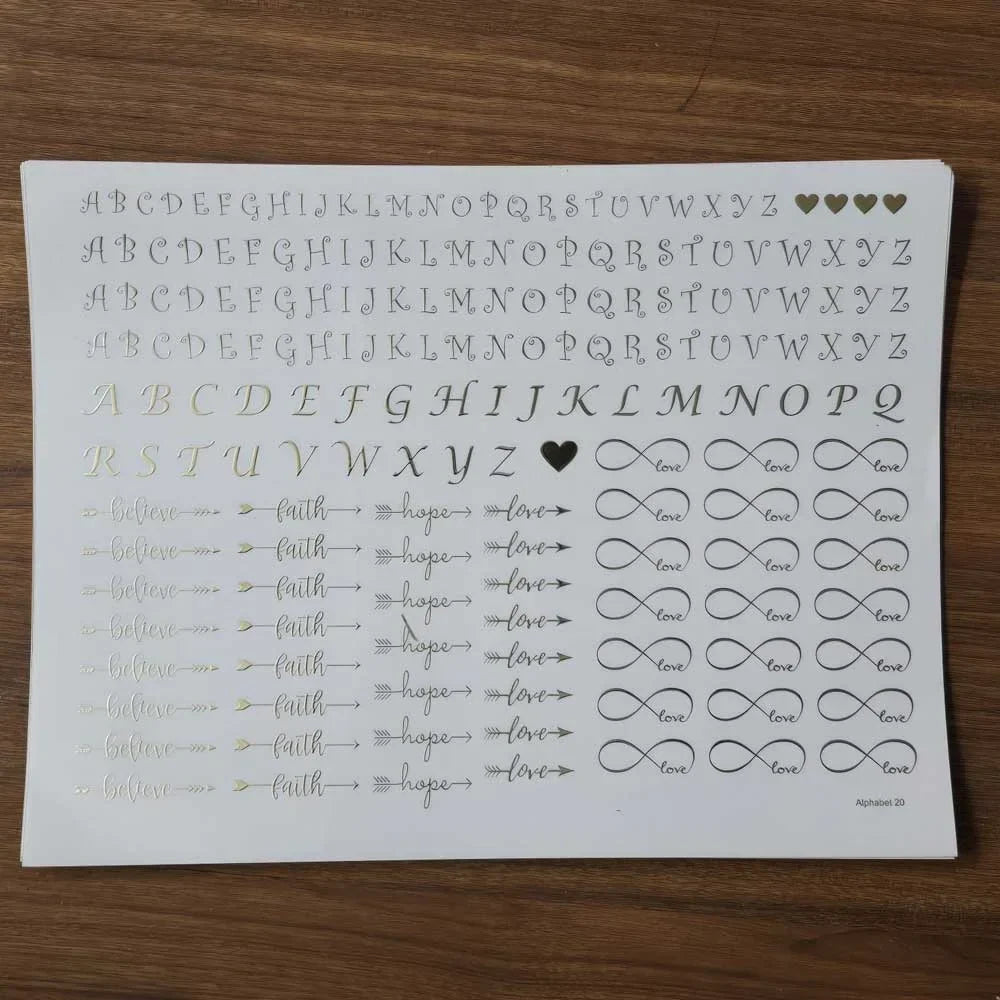 A B C D E F G H I J K L M N O P Q R S T U V W X Y Z
A B C D E F G H I J K L M N O P Q R S T U V W X Y Z
A B C D E F G H I J K L M N O P Q R S T U V W X Y Z
A B C D E F G H I J K L M N O P Q R S T U V W X Y Z
A B C D E F G H I J K L M N O P Q
R S T U V W X Y Z love love love
believe faith hope love love love love
believe faith hope love love love love
believe faith hope love love love love
believe faith hope love love love love
believe faith hope love love love love
believe faith hope love love love love
believe faith hope love
believe faith love
Alphabet 20